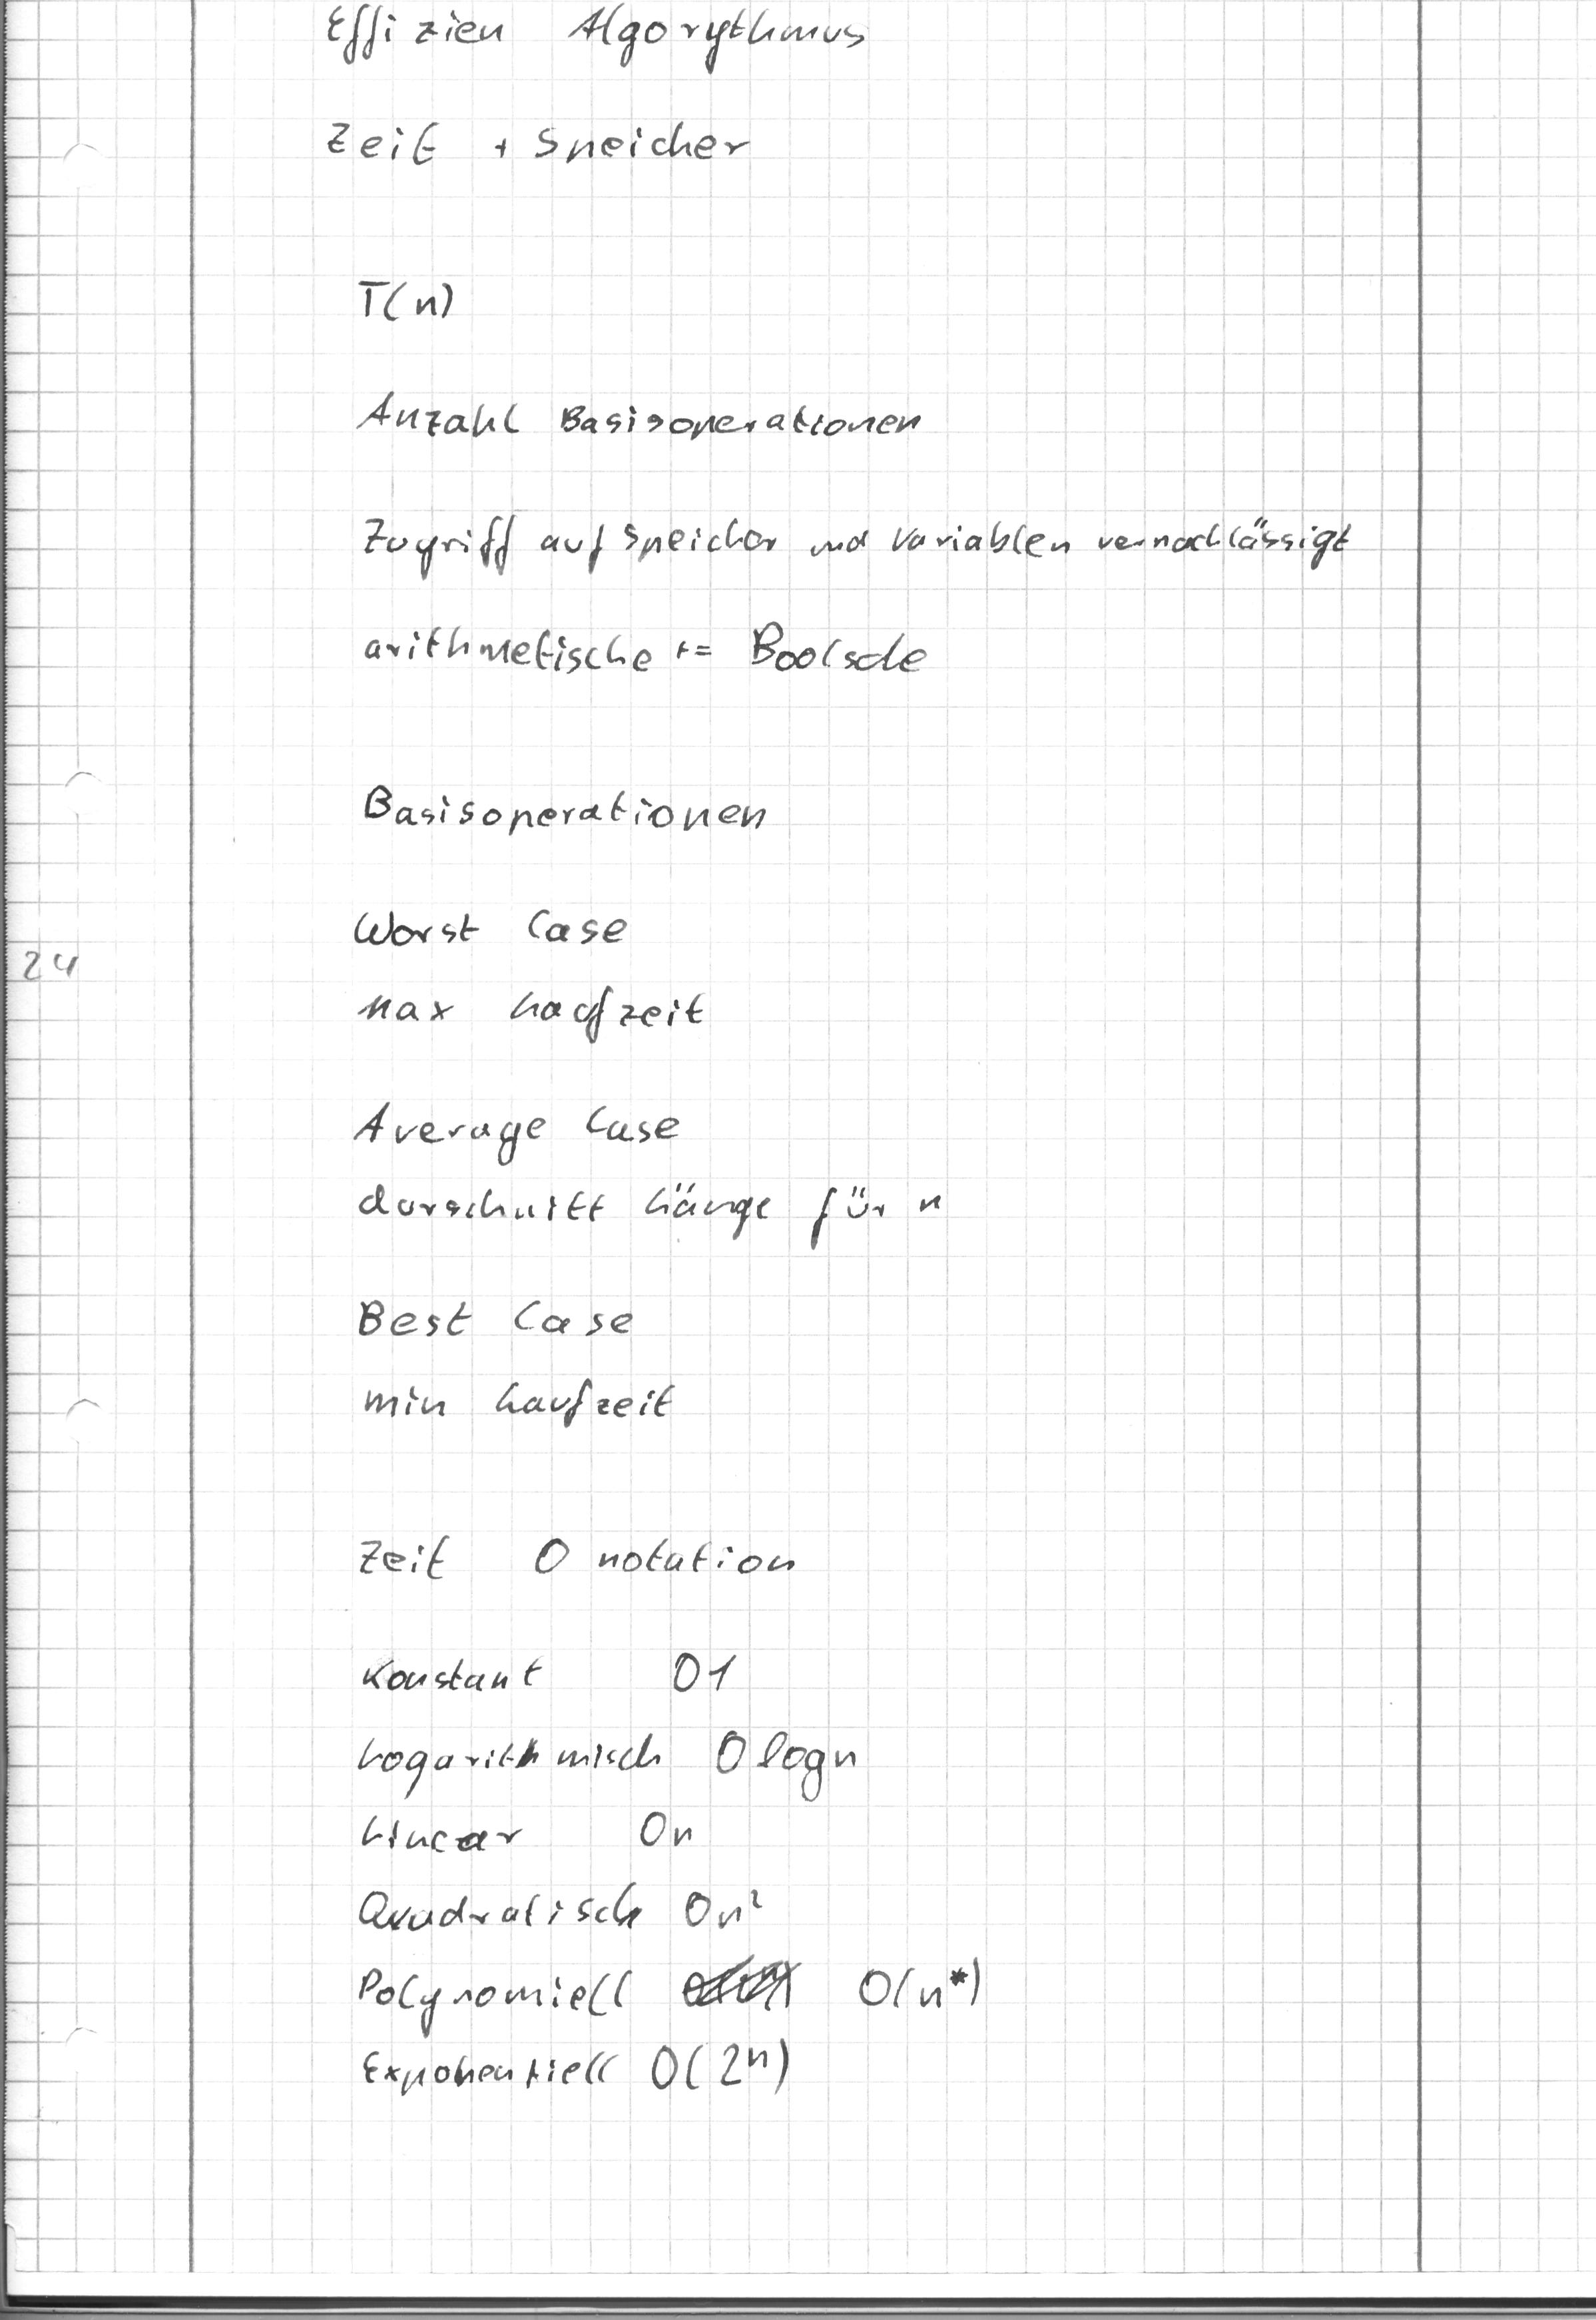 Effizien Algorythmus
Zeit + Speicher
T(n)
Anzahl Basisoperationen
Zugriff auf Speicher und Variablen vernachlässigt
arithmetische += Boolsche
Basisoperationen
Worst Case
24
max Laufzeit
Average Case
durschnitt Länge für n
Best Case
min Laufzeit
Zeit O notation
Konstant O1
Logarithmisch O logn
Linear On
Quadratisch On²
Polynomiell O(n*)
Exponentiell O(2ⁿ)